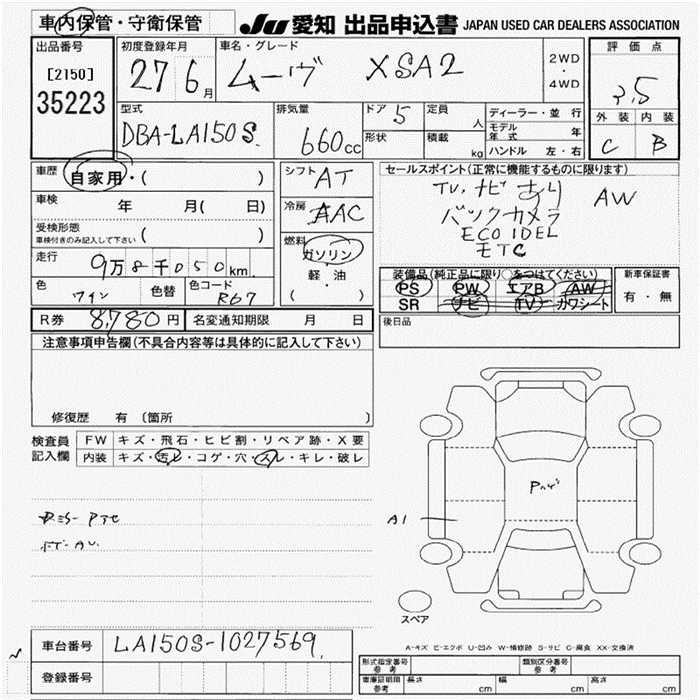 車内保管・守衛保管
JU 愛知 出品申込書 JAPAN USED CAR DEALERS ASSOCIATION
出品番号
[2150]
35223
初度登録年月
27 6月
車名・グレード
ムーヴ XSA2
2WD
・
4WD
評価点
3.5
外装 内装
C B
型式
DBA-LA150S
排気量
660cc
ドア 5
形状
定員 人
積載 kg
ディーラー・並行
モデル年式 年
ハンドル 左・右
車歴 自家用・( )
車検 年 月( 日)
受検形態
車検付きのみ記入して下さい ( )
走行 9万8千050km
色 ワイン 色替
色コード R67
シフト AT
冷房 AAC
燃料
ガソリン
軽・油
( )
セールスポイント(正常に機能するものに限ります)
TV.ナビ あり AW
バックカメラ
ECO IDEL
ETC
装備品(純正品に限り○をつけてください)
PS PW エアB AW
SR ナビ TV カワシート
新車保証書
有・無
R券 8,780円 名変通知期限 月 日
後日品
注意事項申告欄(不具合内容等は具体的に記入して下さい)
修復歴 有〔箇所
検査員記入欄
FW キズ・飛石・ヒビ割・リペア跡・X要
内装 キズ・汚レ・コゲ・穴・スレ・キレ・破レ
A1
スペア
A-キズ E-エクボ U-凹み W-補修跡 S-サビ C-腐食 XX-交換済
車台番号 LA150S-1027569
登録番号
形式指定番号 参考
類別区分番号 参考
車庫証明期 参考 長さ cm 幅 cm 高さ cm